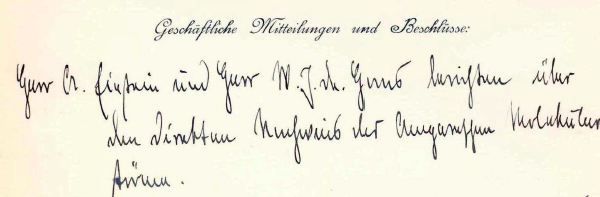 Geschäftliche Mitteilungen und Beschlüsse:
Herr A. Einstein und Herr W. J. de Haas berichten über
den direkten Nachweis der Ampereschen Molekular
ströme.